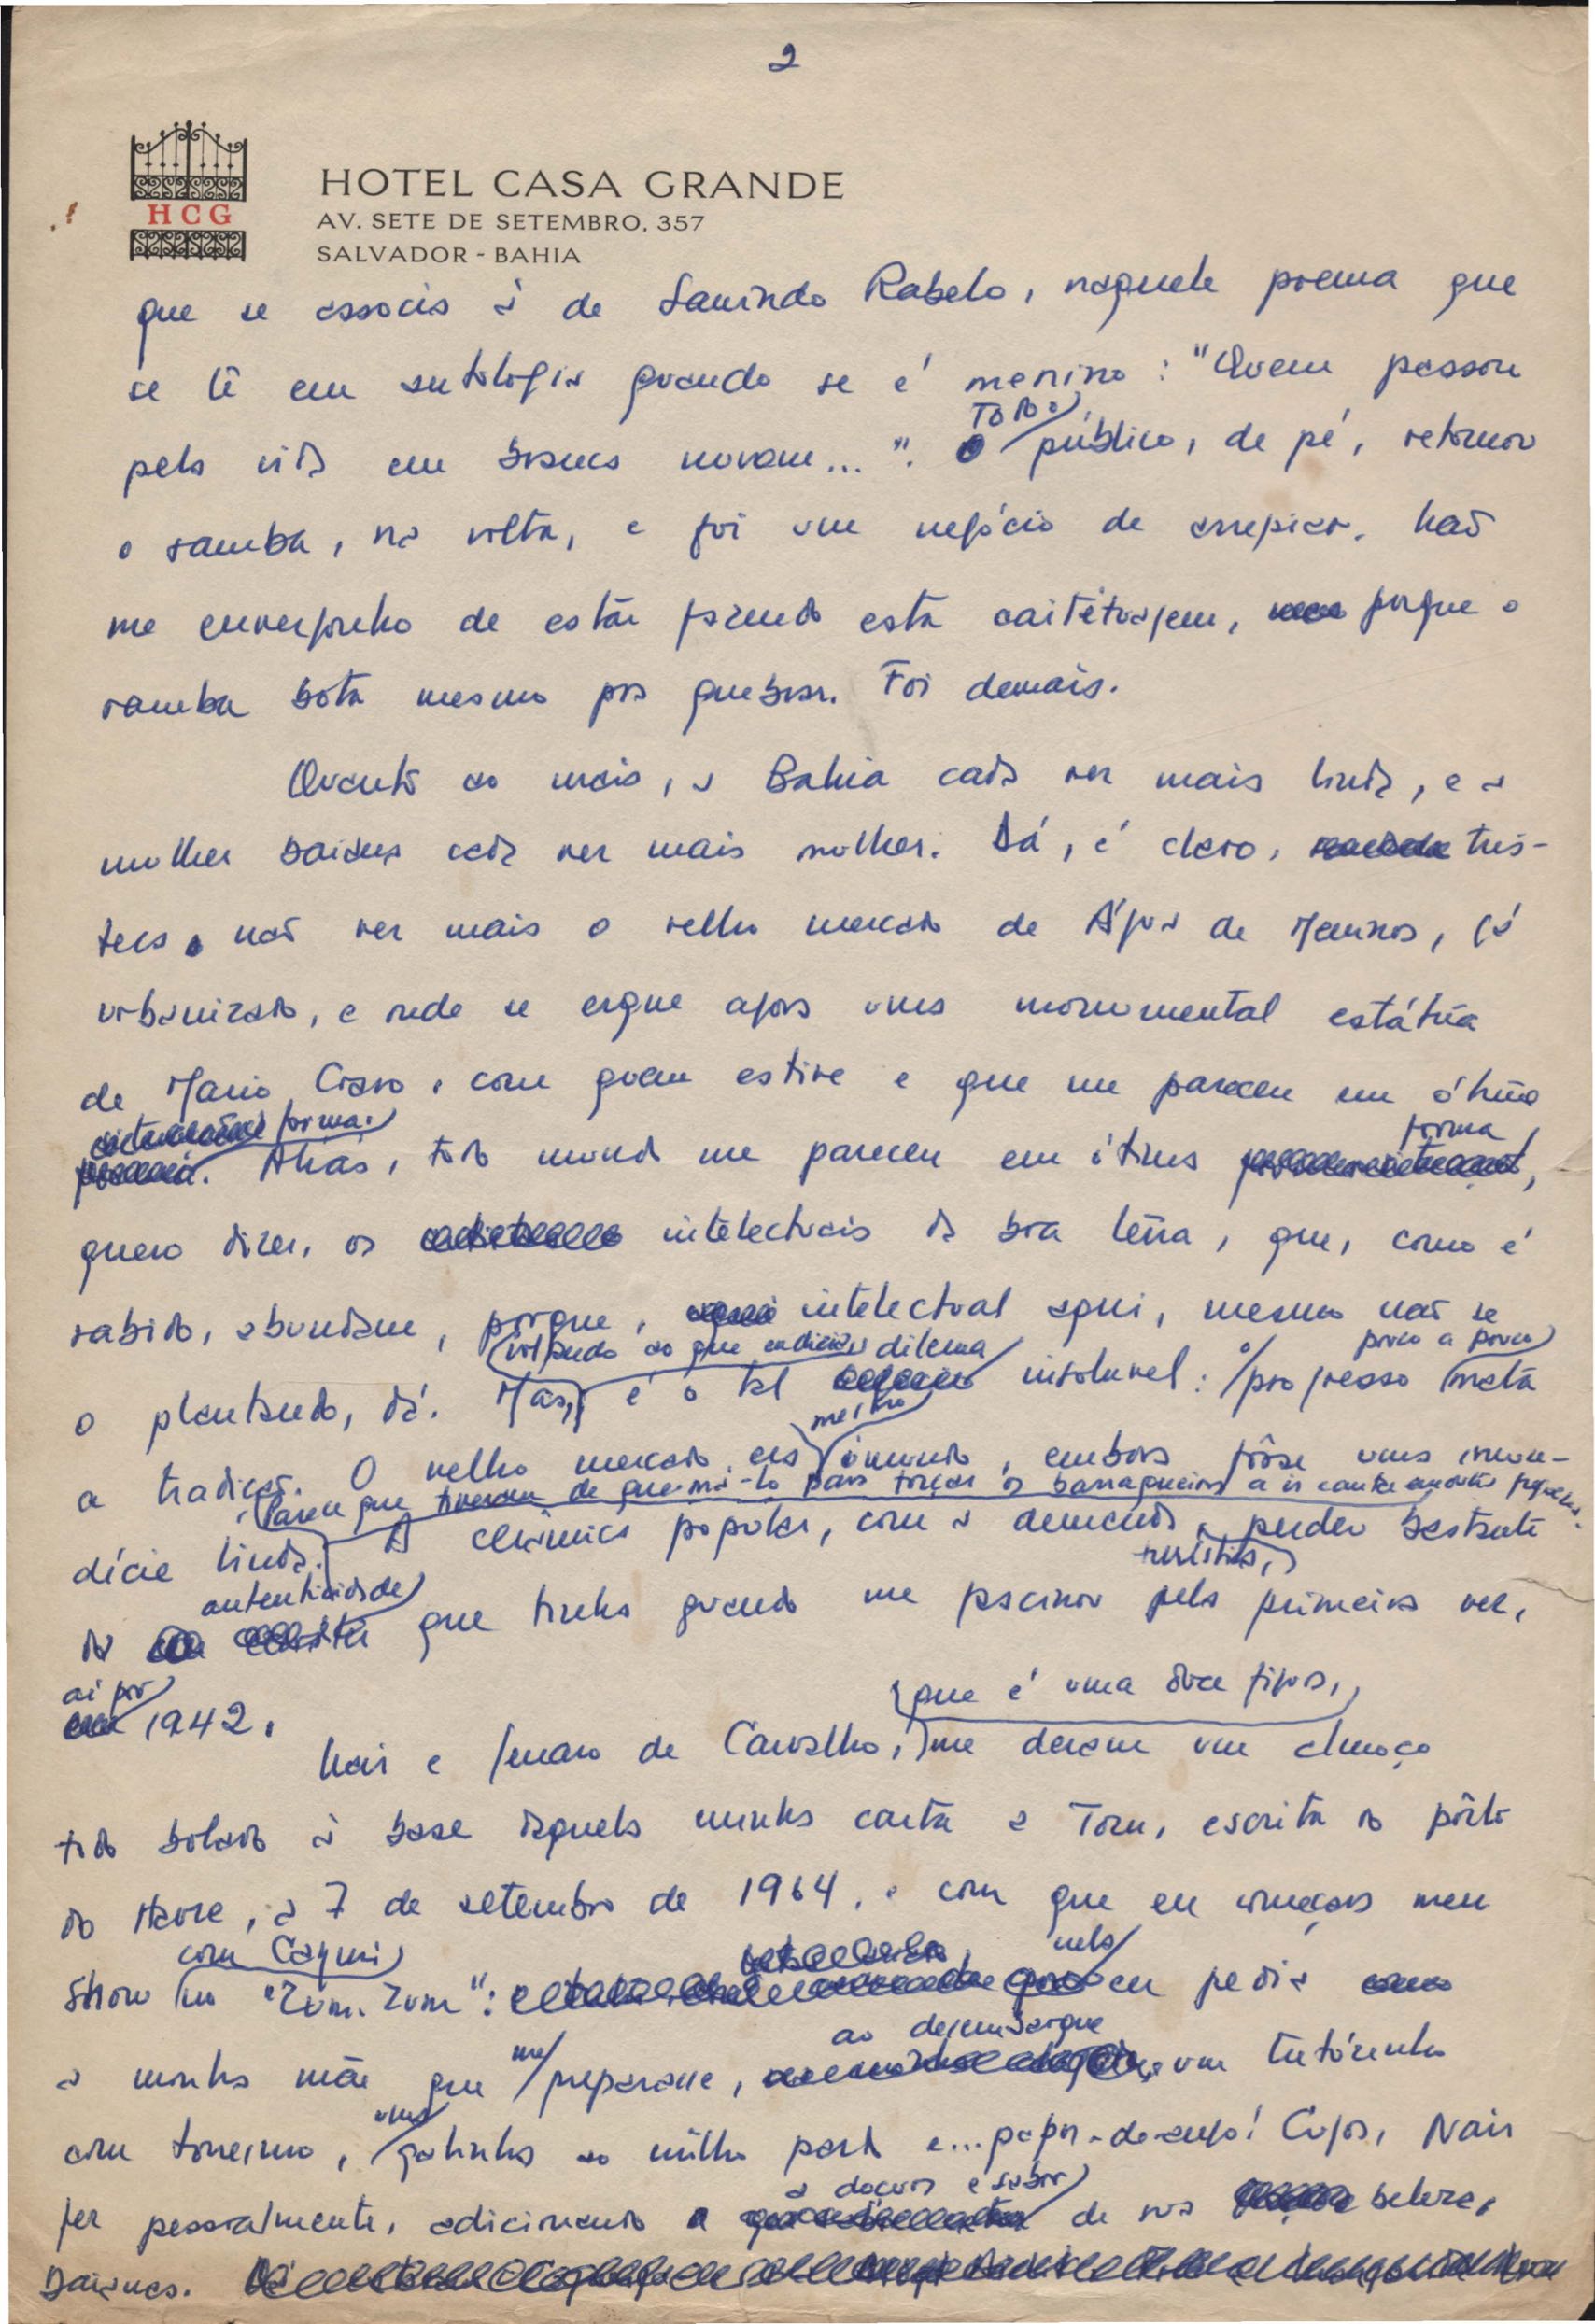 2
HCG
HOTEL CASA GRANDE
AV. SETE DE SETEMBRO, 357
SALVADOR - BAHIA
que se associa à de Laurindo Rabelo, naquele poema que
se lê em antologia quando se é menino: "Quem passou
Todo o
pela vida em branca nuvem...". público, de pé, retomou
o samba, na volta, e foi um negócio de arrepiar. Não
me envergonho de estar fazendo esta caitituagem, porque o
samba bota mesmo pra quebrar. Foi demais.
Quanto ao mais, a Bahia cada vez mais linda, e a
mulher baiana cada vez mais mulher. Dá, é claro, tris-
teza não ver mais o velho mercado de Água de Meninos, já
urbanizado, e onde se ergue agora uma monumental estátua
de Mario Cravo, com quem estive e que me pareceu em ótima
forma. forma
Aliás, todo mundo me pareceu em ótima ,
quero dizer, os intelectuais da boa terra, que, como é
sabido, abundam, porque, intelectual aqui, mesmo não se
voltando ao que dilema o pouco a pouco
o plantando, dá. Mas, é o tal insoluvel: progresso mata
mesmo
a tradição. O velho mercado era imundo, embora fôsse uma imun-
Parece que tiveram de queimá-lo para forçar os barraqueiros a ir cantar em outra freguesia.
dície linda. A cerâmica popular, com a demanda perdeu bastante
turística,
autenticidade
da que tinha quando me fascinou pela primeira vez,
aí por
1942.
que é uma doce figura,
Nair e Jenaro de Carvalho, me deram um almoço
todo bolado à base daquela minha carta a Tom, escrita do pôrto
do Havre, a 7 de setembro de 1964, e com que eu começava meu
com Caymi nela
Show no "Zum-Zum": eu pedia
ao desembarque
me
a minha mãe que preparasse, um tutúzinho
uma
com torresmo, galinha ao milho pard e... papos-de-anjo! Cujos, Nair
a doçura e sabor
fez pessoalmente, adicionando de sua beleza
baiana.